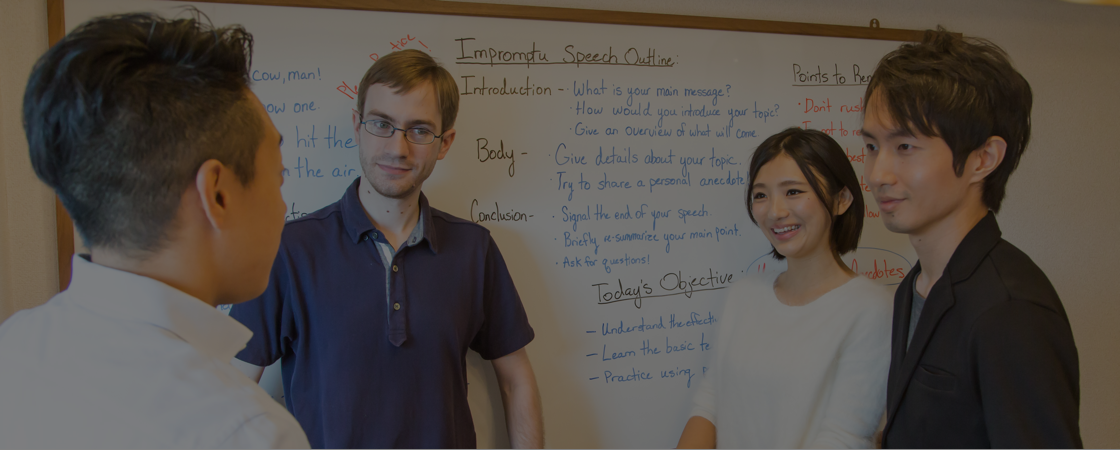 Cow, man!
ow one.
hit the
the air
Impromptu Speech Outline:
Introduction - · What is your main message?
· How would you introduce your topic?
· Give an overview of what will come
Body - · Give details about your topic.
· Try to share a personal anecdote
Conclusion - · Signal the end of your speech.
· Briefly re-summarize your main point.
· Ask for questions!
Today's Objective
- Understand the effecti
- Learn the basic te
- Practice using p
Points to Rem
· Don't rush
best
low
Anecdotes